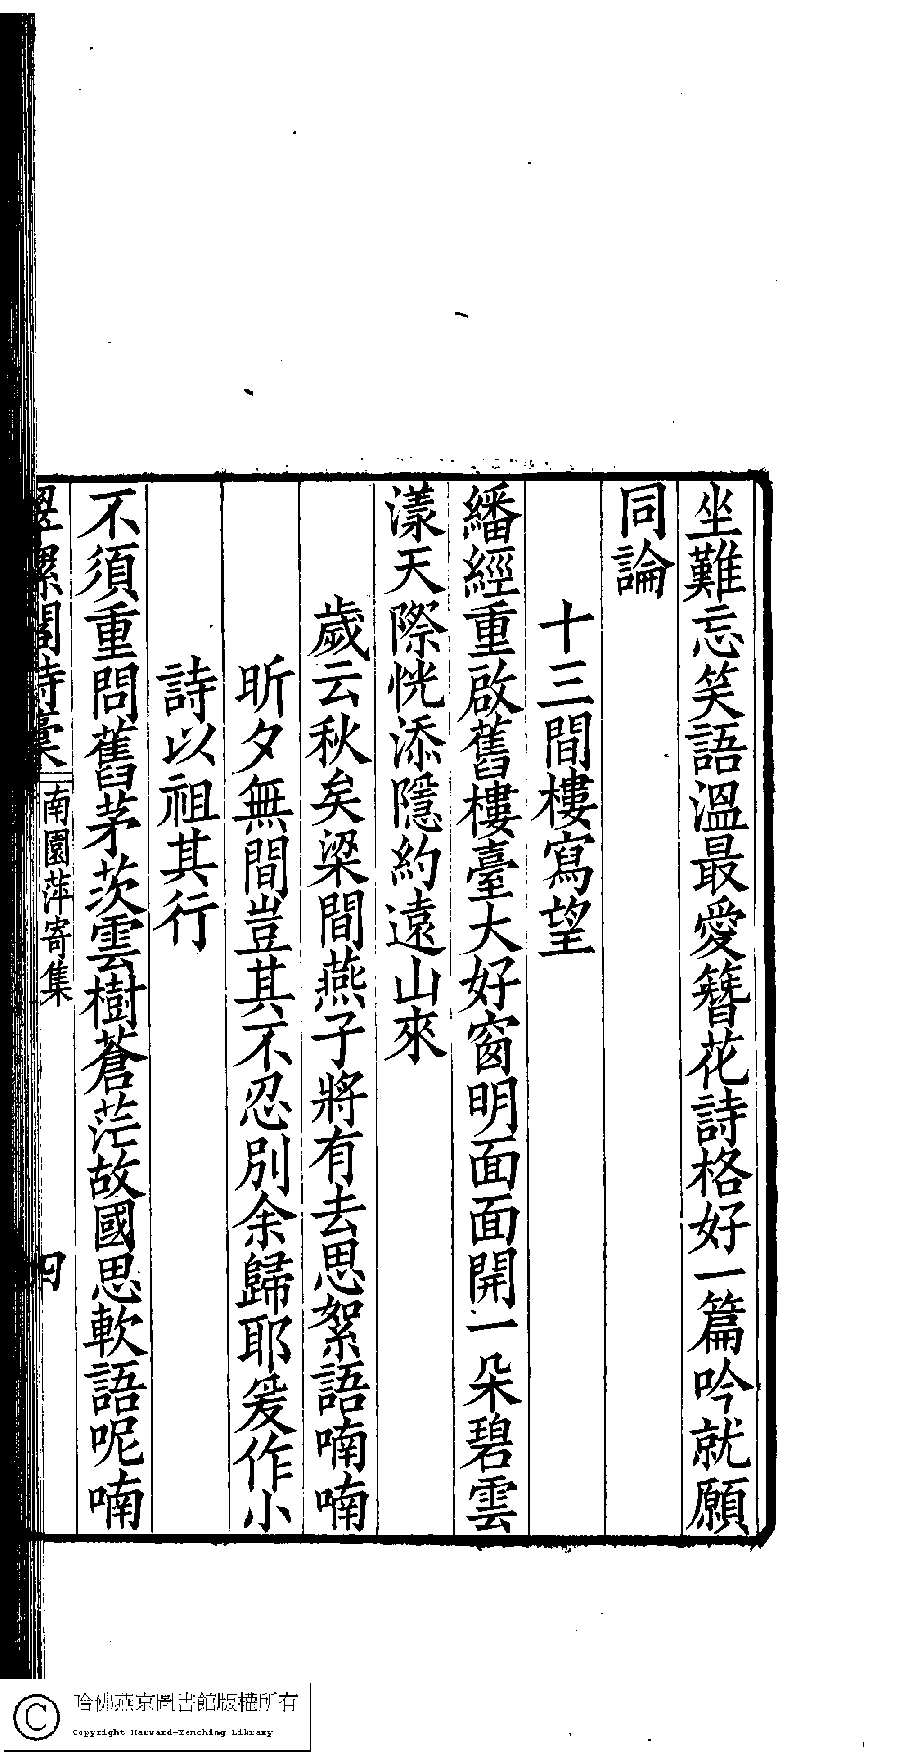 坐難忘笑語溫最愛簪花詩格好一篇吟就願
同論
十三間樓寫望
繙經重啟舊樓臺大好窗明面面開一朵碧雲
漾天際恍添隱約遠山來
歲云秋矣梁間燕子將有去思絮語喃喃
昕夕無間豈其不忍別余歸耶爰作小
詩以祖其行
不須重問舊茅茨雲樹蒼茫故國思軟語呢喃
閣詩稾 南園萍寄集
四
哈佛燕京圖書館版權所有
Copyright Harvard-Yenching Library